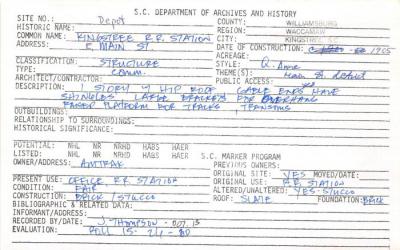 S.C. DEPARTMENT OF ARCHIVES AND HISTORY
SITE NO.: Depot COUNTY: WILLIAMSBURG
HISTORIC NAME: REGION: WACCAMAW
COMMON NAME: KINGSTREE R.R. STATION CITY: KINGSTREE, SC
ADDRESS: E. MAIN ST DATE OF CONSTRUCTION: 1905
ACREAGE:
CLASSIFICATION: STRUCTURE STYLE: Q. Anne
TYPE: Comm. THEME(S):
ARCHITECT/CONTRACTOR: PUBLIC ACCESS:
DESCRIPTION: STORY W HIP ROOF GABLE ENDS HAVE
SHINGLES LARGE BRACKETS FOR OVERHANG
RAISED PLATFORM FOR TRACKS, TRANSOMS
OUTBUILDINGS:
RELATIONSHIP TO SURROUNDINGS:
HISTORICAL SIGNIFICANCE:
POTENTIAL: NHL NR NRHD HABS HAER
LISTED: NHL NR NRHD HABS HAER S.C. MARKER PROGRAM
OWNER/ADDRESS: AMTRAK PREVIOUS OWNERS:
ORIGINAL SITE: YES MOVED/DATE:
PRESENT USE: OFFICE, R.R. STATION ORIGINAL USE: R.R. STATION
CONDITION: FAIR ALTERED/UNALTERED: YES-STUCCO
CONSTRUCTION: BRICK/STUCCO ROOF: SLATE FOUNDATION: BRICK
BIBLIOGRAPHIC & RELATED DATA:
INFORMANT/ADDRESS:
RECORDED BY/DATE: J. THOMPSON
EVALUATION: